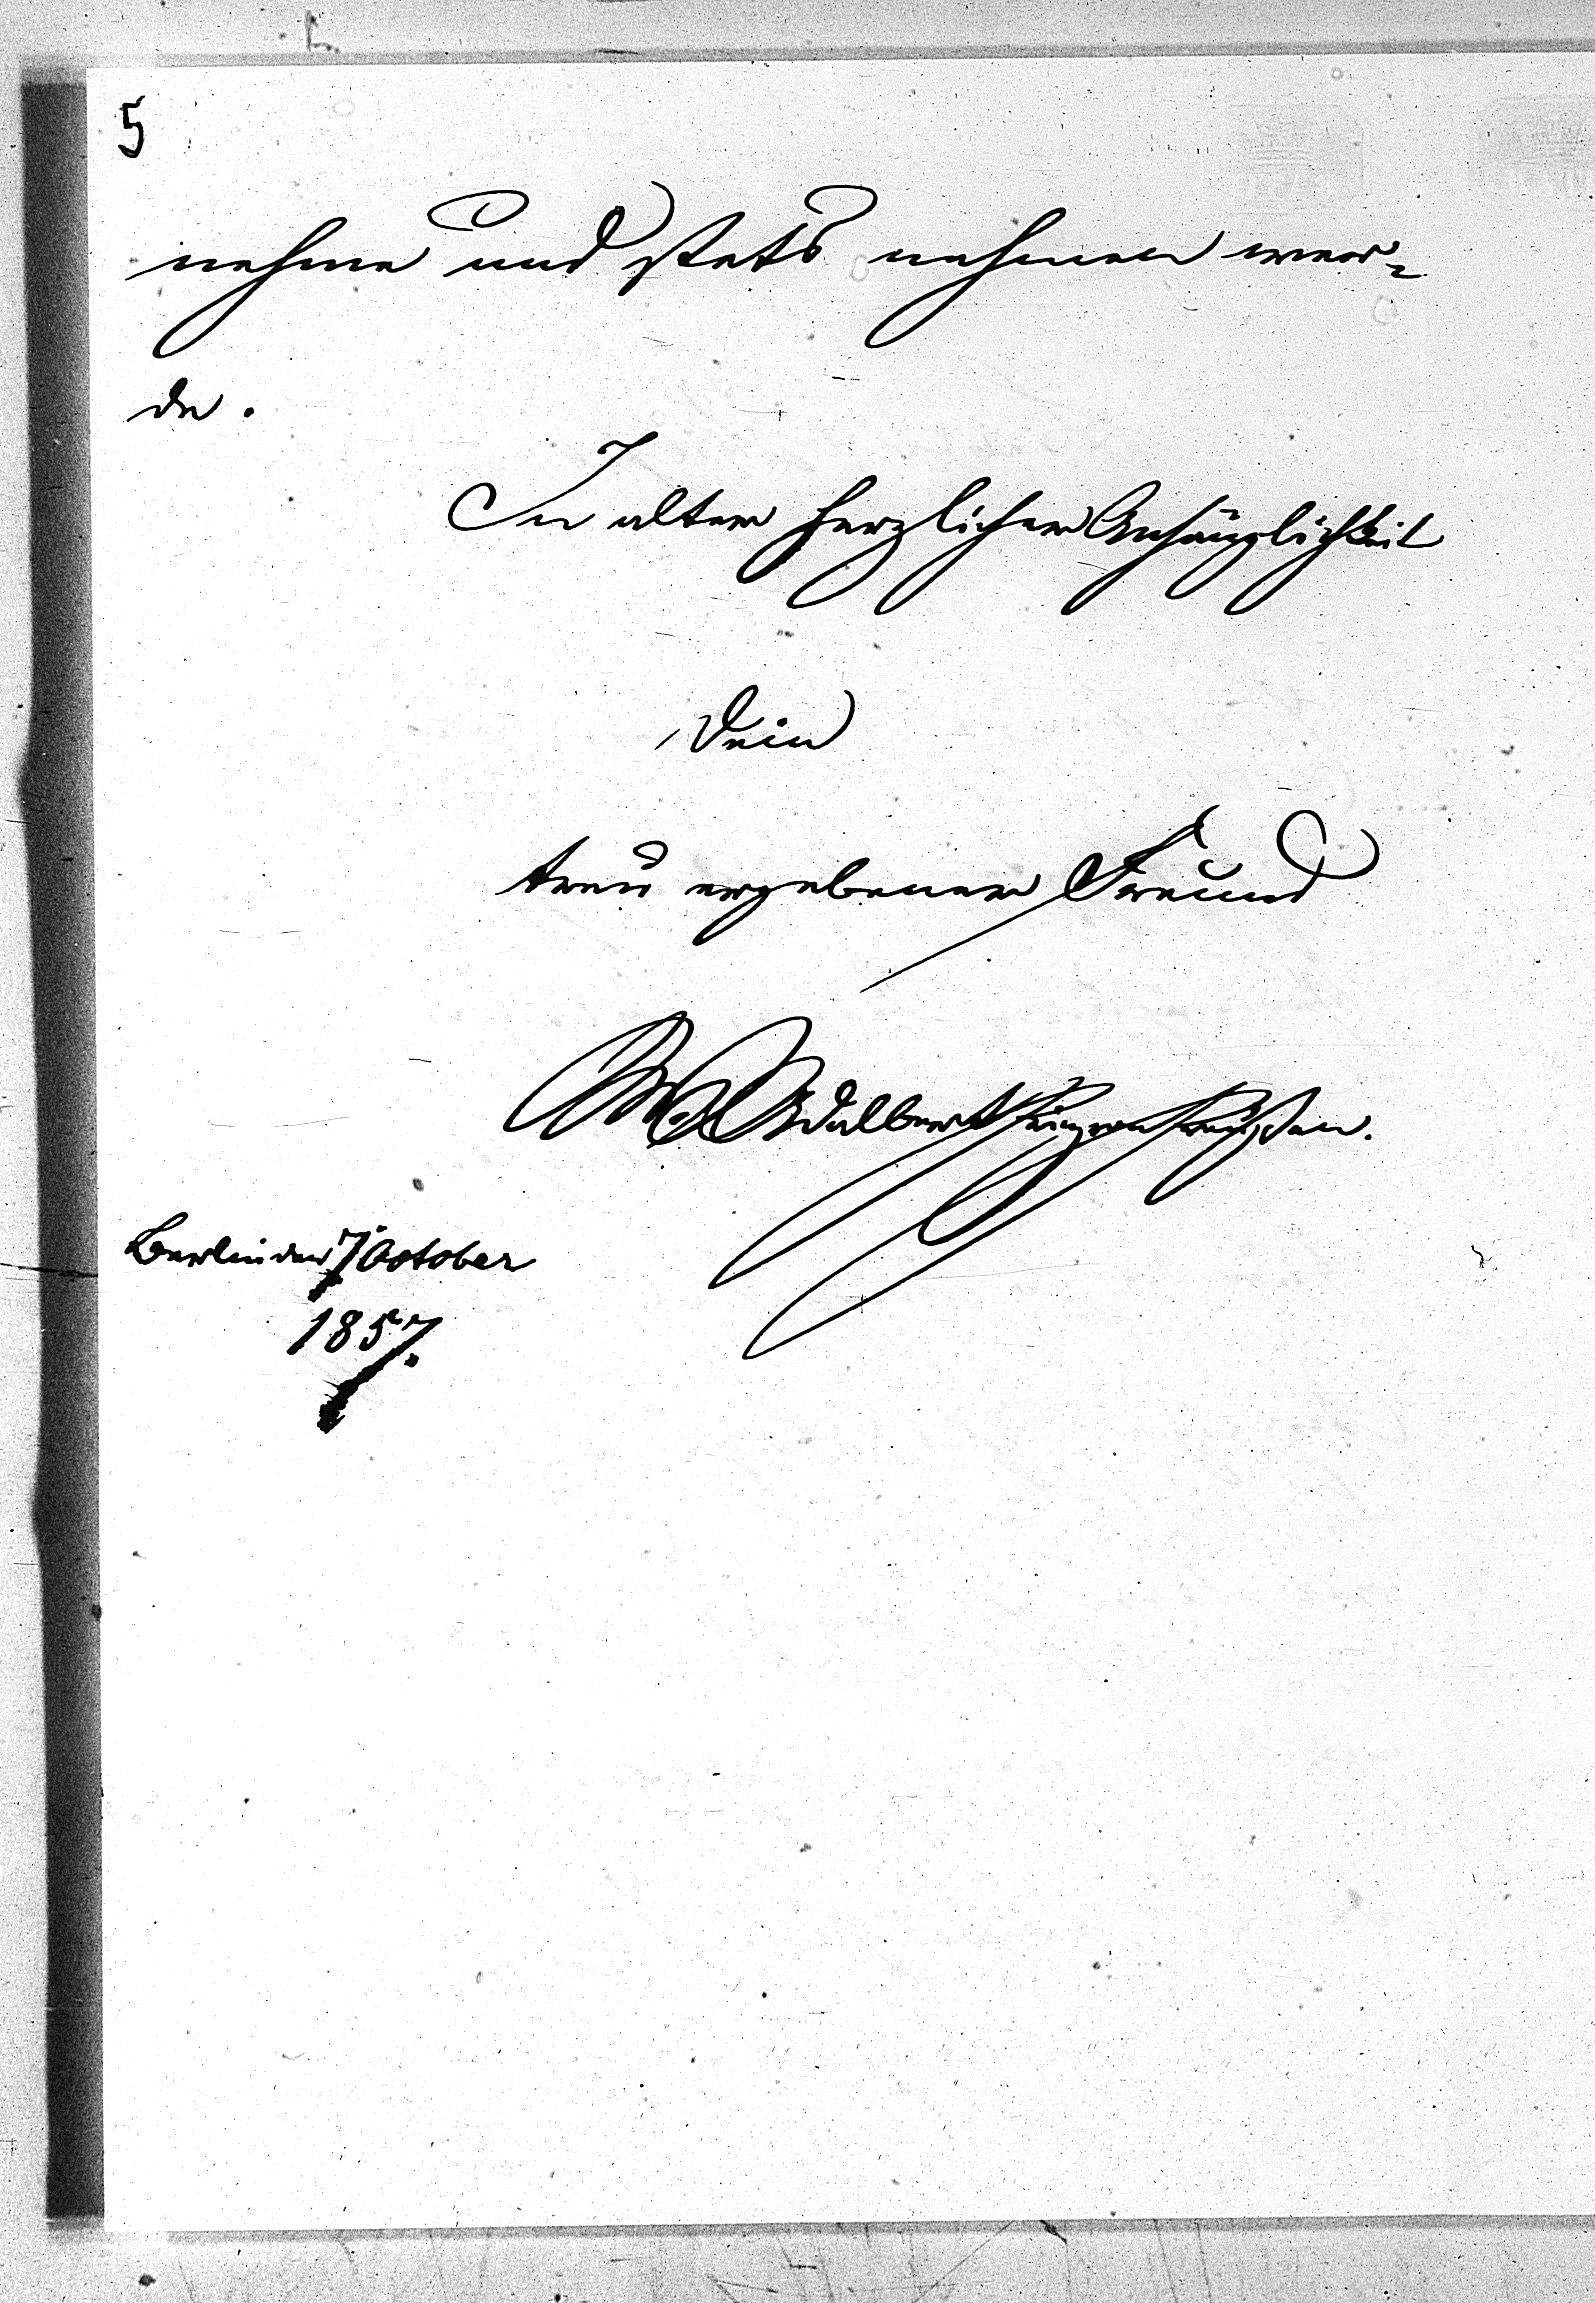 5
nehme und stets nehmen wer-
de.
In alter herzlicher Anhänglichkeit
Dein
treu ergebener Freund
Adalbert Prinz von Preußen.
Berlin den 7 October
1857.